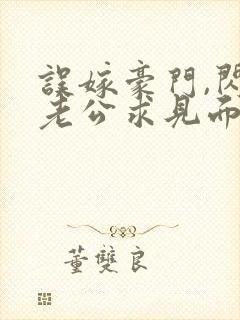 誤嫁豪門,閃
老公求見而
董雙良